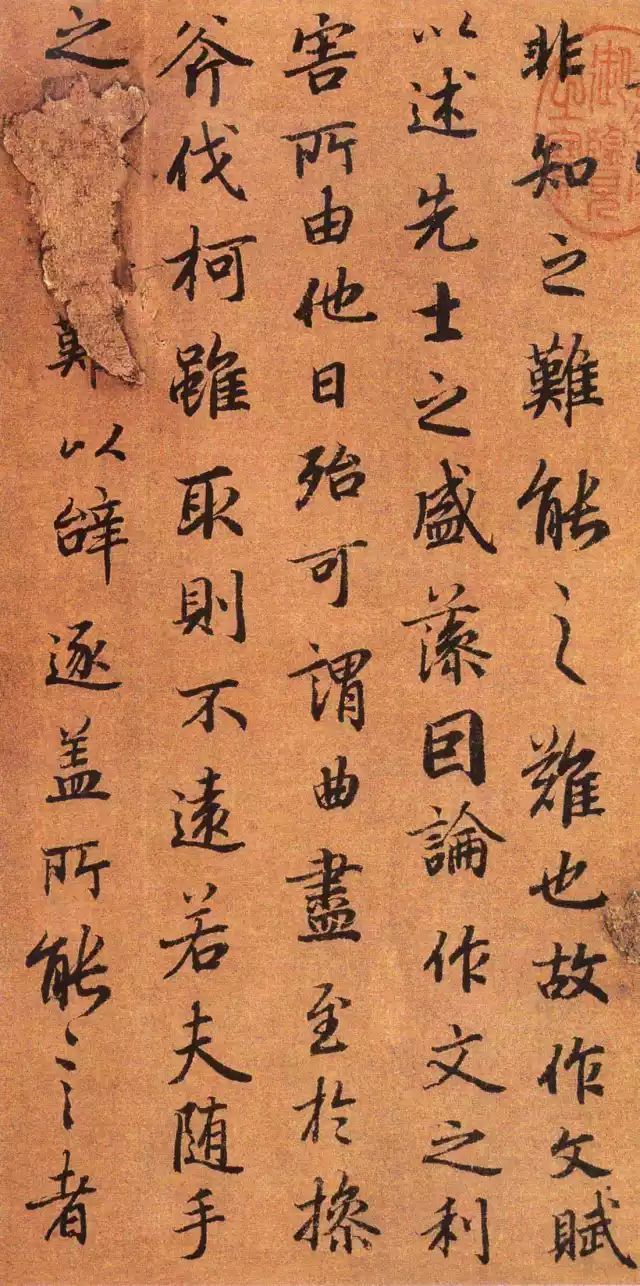 非知之難能之難也故作文賦
以述先士之盛藻因論作文之利
害所由他日殆可謂曲盡至於操
斧伐柯雖取則不遠若夫随手
之以辝逐盖所能言者